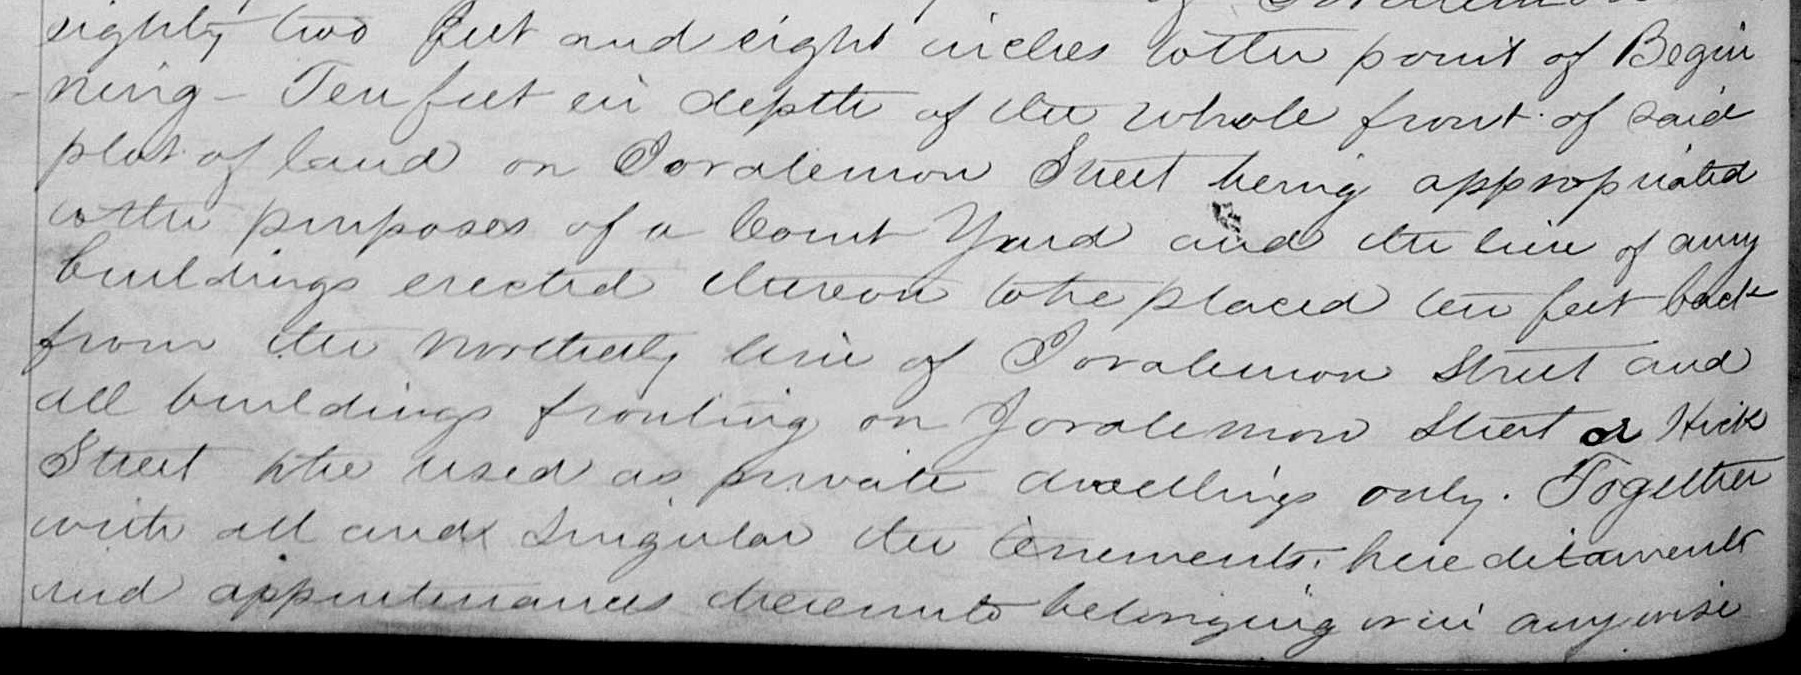 of Joralemon
eighty two feet and eight inches to the point of Begin
ning - Ten feet in depth of the whole front of said
plot of land on Joralemon Street being appropriated
to the purposes of a Court Yard and the line of any
buildings erected thereon to be placed ten feet back
from the Northerly line of Joralemon Street and
all buildings fronting on Joralemon Street or Hicks
Street to be used as private dwellings only. Together
with all and Singular the tenements, hereditaments
and appurtenances thereunto belonging or in any wise